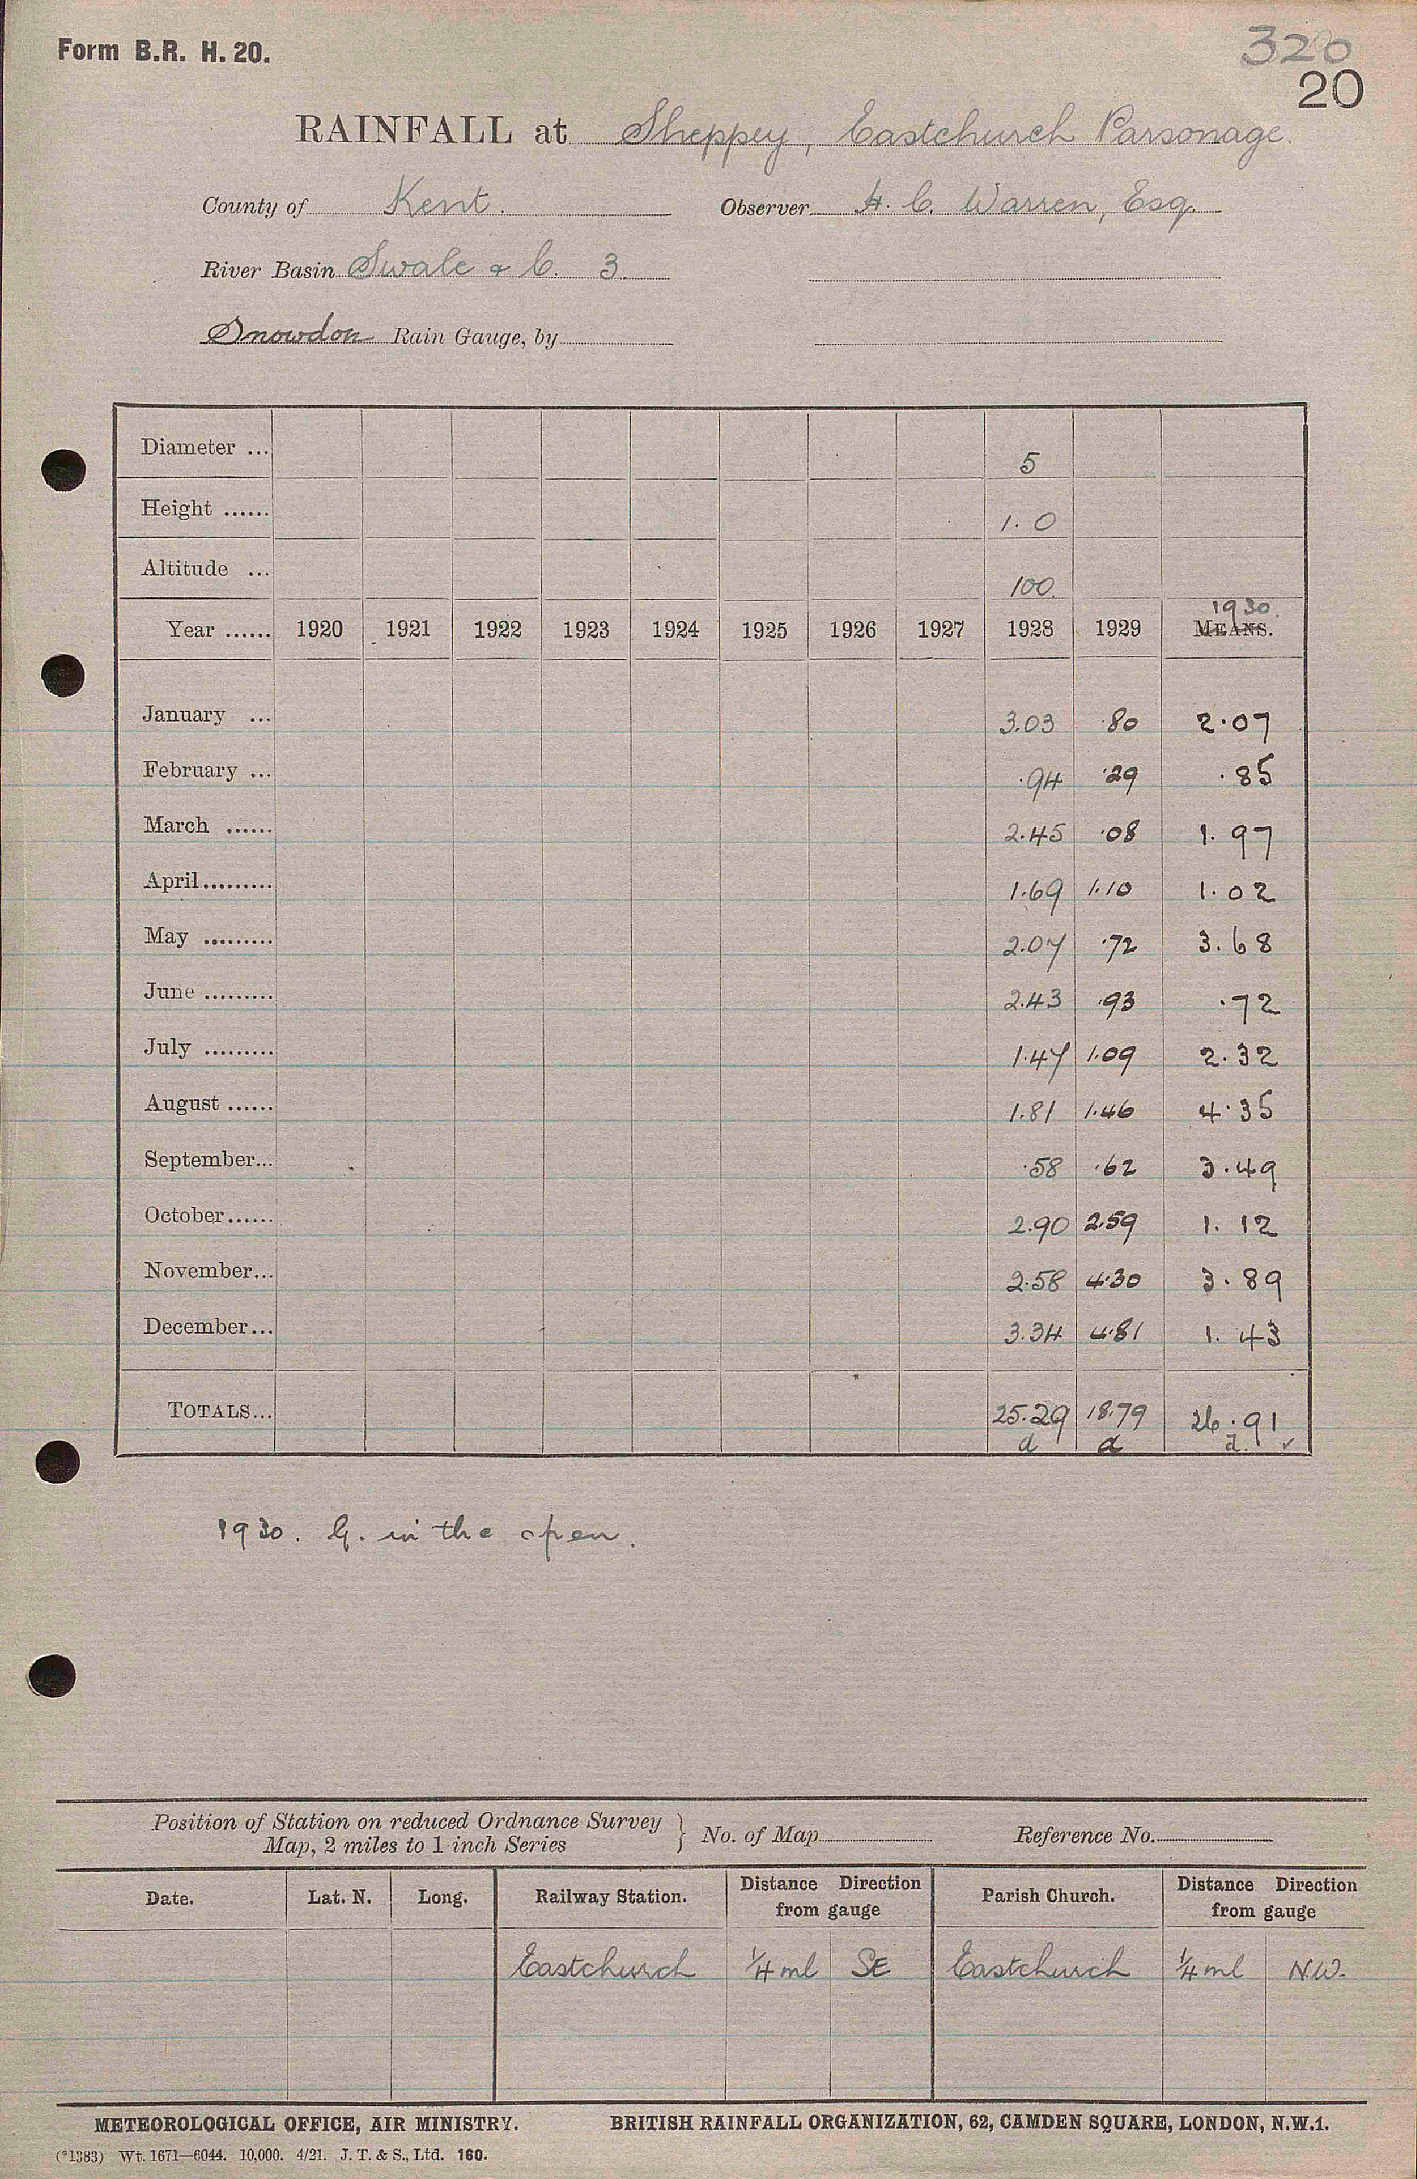 Form B.R. H. 20.
320
20
RAINFALL at Sheppey, Eastchurch Parsonage.
County of Kent. Observer H. C. Warren, Esq.
River Basin Swale & C. 3.
Snowdon Rain Gauge, by
Diameter ... 5
Height ...... 1. 0
Altitude ... 100.
1930.
Year ...... 1920 1921 1922 1923 1924 1925 1926 1927 1928 1929 MEANS.
January ... 3.03 .80 2.07
February ... .94 .29 .85
March ...... 2.45 .08 1.97
April......... 1.69 1.10 1.02
May ......... 2.07 .72 3.68
June ......... 2.43 .93 .72
July ......... 1.47 1.09 2.32
August ...... 1.81 1.46 4.35
September... .58 .62 3.49
October...... 2.90 2.59 1.12
November... 2.58 4.30 3.89
December... 3.34 4.81 1.43
TOTALS... 25.29 18.79 26.91
d d d. ✓
1930. G. in the open.
Position of Station on reduced Ordnance Survey
Map, 2 miles to 1 inch Series } No. of Map Reference No.
Date. Lat. N. Long. Railway Station. Distance Direction from gauge Parish Church. Distance Direction from gauge
Eastchurch 1/4 ml SE Eastchurch 1/4 ml N.W.
METEOROLOGICAL OFFICE, AIR MINISTRY. BRITISH RAINFALL ORGANIZATION, 62, CAMDEN SQUARE, LONDON, N.W.1.
(*1383) Wt. 1671—6044. 10,000. 4/21. J. T. & S., Ltd. 160.